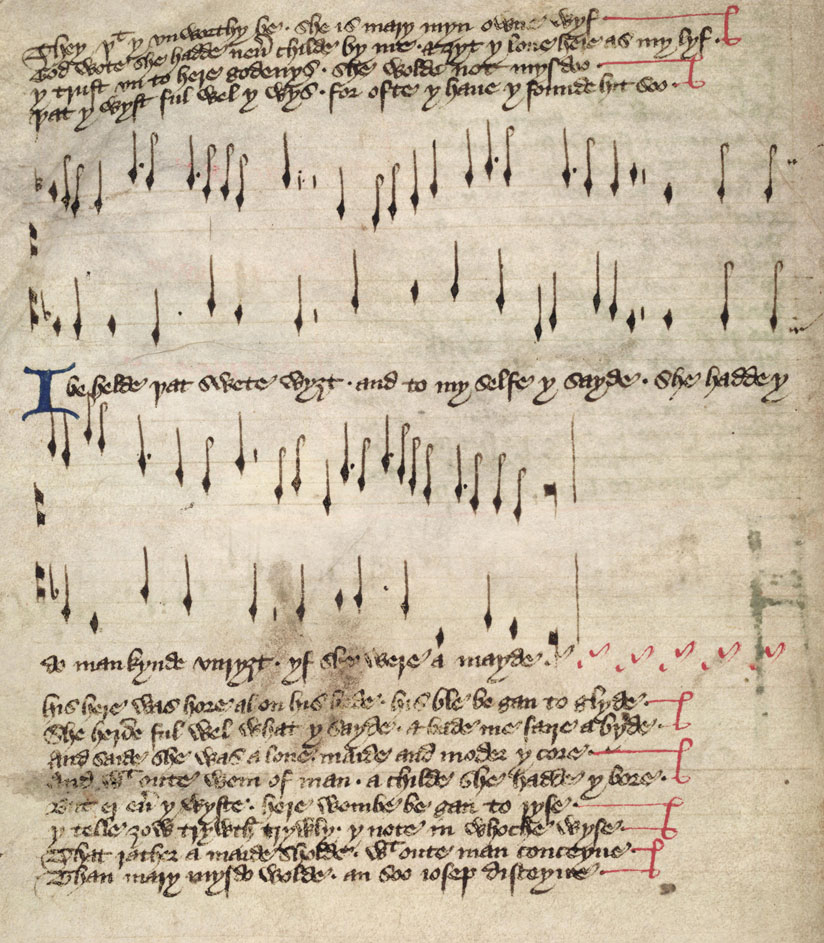 They þt y vnworthy be · she is mary myn owne wyf
God wote she hadde neu̅ childe by me · & ȝyt y loue here as my lyf ·
y trust vn to here godenys · she wolde not mysdo
þat y wyst ful wel y wys · for ofte y haue y founde hit soo ·
I be helde þat swete wyȝt · and to my selfe y sayde · She hadde y
do mankynde vnryȝt · yf she were a mayde ·
his here was hore al on his hede · his ble be gan to glyde
She herde ful wel what y sayde · & bade me faire abyde ·
And saide she was a lone maide and moder y core
And wt oute wem of man · a childe she hadde y bore ·
But er eu̅ y wyste · here wombe be gan to ryse
y telle ȝow trywth trywly · y note in whoche wyse
That rather a maide sholde · wt oute man conceyue
Than mary mysdo wolde · an soo iosep disceyue